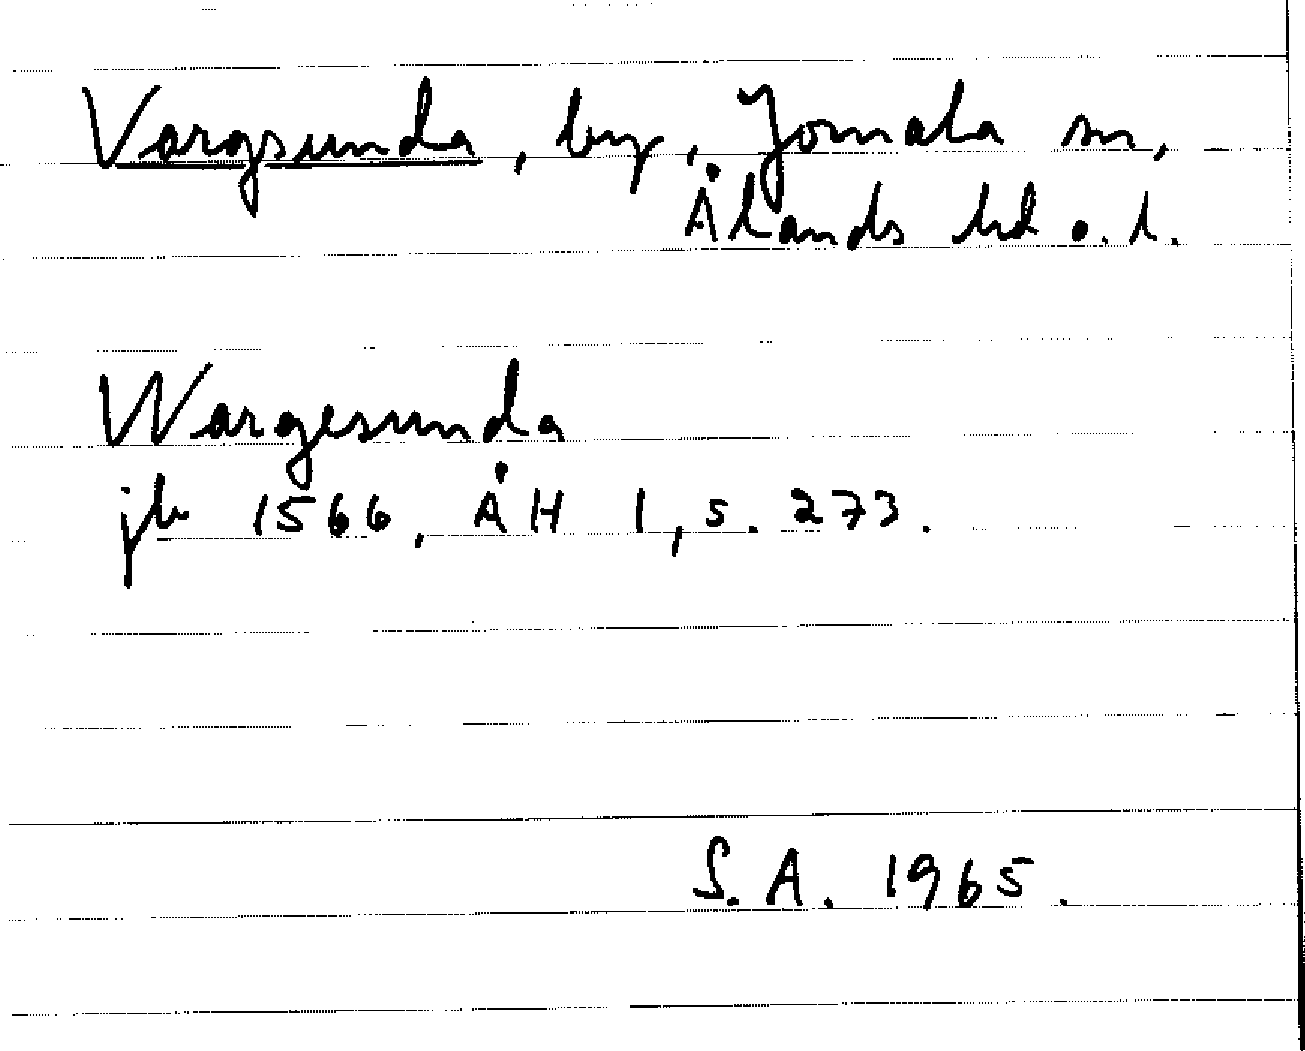 Vargsunda, by, Jomala sn,
Ålands hd o. l.
Wargesunda
jb 1566, ÅH 1, s. 273.
S.A. 1965.